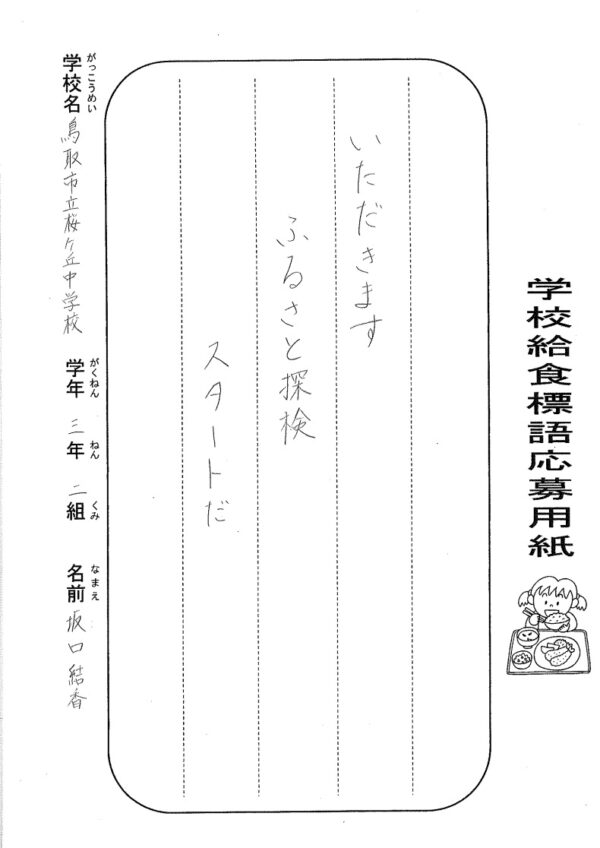 学校給食標語応募用紙
いただきます
ふるさと探検
スタートだ
がっこうめい
学校名 鳥取市立桜ヶ丘中学校
がくねん ねん くみ
学年 三年 二組
なまえ
名前 坂口結香